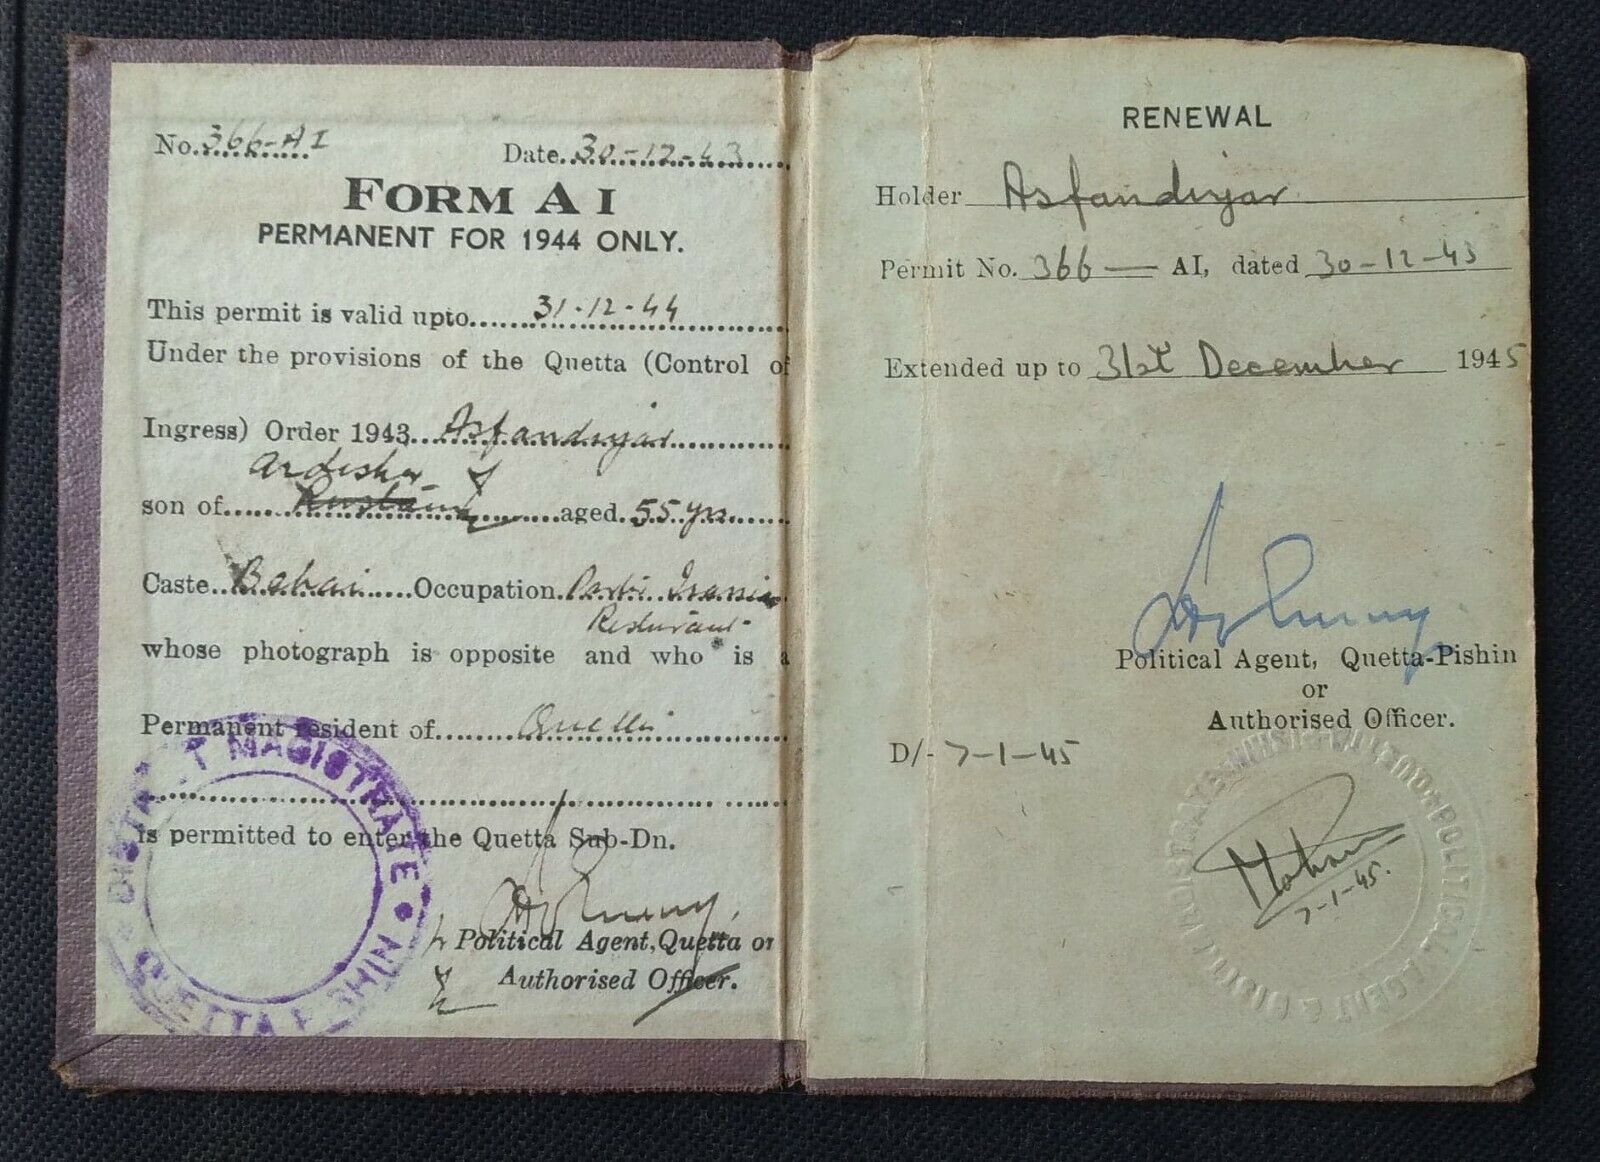 No. 366-AI Date. 30-12-43
FORM A I
PERMANENT FOR 1944 ONLY.
This permit is valid upto 31-12-44
Under the provisions of the Quetta (Control of
Ingress) Order 1943 Asfandiyar
Ardisher
son of aged 55 yrs
Caste Bahai Occupation
Resturant
whose photograph is opposite and who is a
Permanent resident of Quetta
is permitted to enter the Quetta Sub-Dn.
Political Agent, Quetta or
Authorised Officer.
DISTRICT MAGISTRATE
QUETTA PISHIN
RENEWAL
Holder Asfandiyar
Permit No. 366 — AI, dated 30-12-43
Extended up to 31st December 1945
Political Agent, Quetta-Pishin
or
Authorised Officer.
D/- 7-1-45
7-1-45.
POLITICAL AGENT &